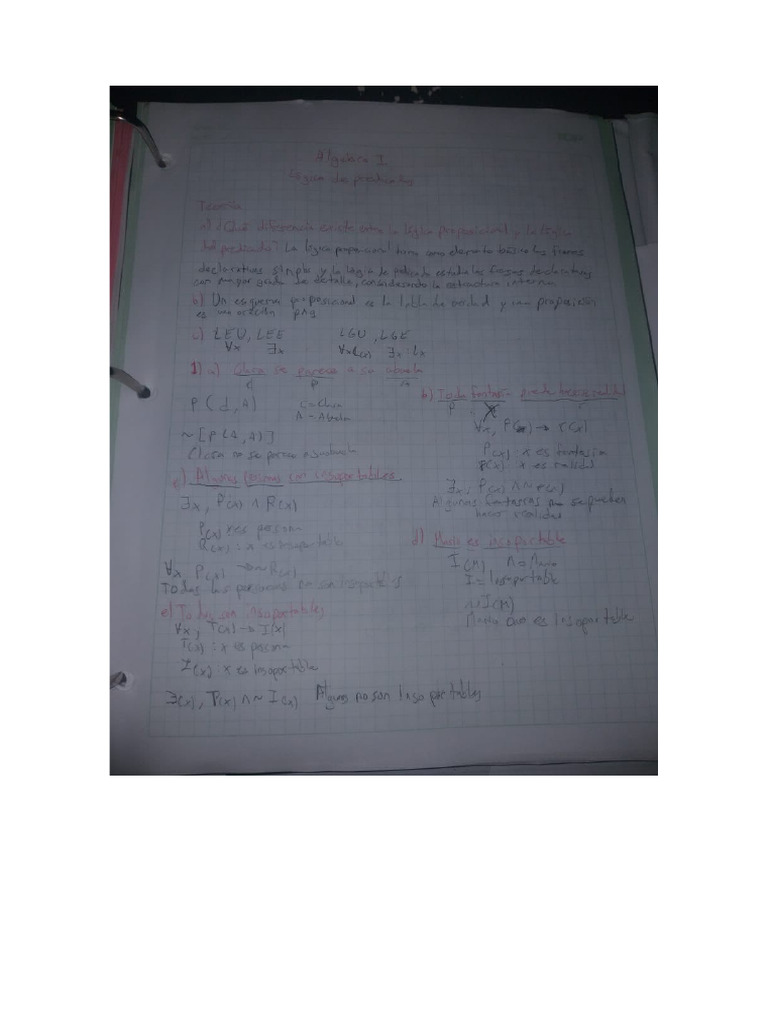 Algebra I
Lógica de predicados
Teoría
a) ¿Qué diferencia existe entre la lógica proposicional y la lógica
del predicado? La lógica proposicional toma como elemento básico las frases
declarativas simple y la lógica de predicado estudia las frases declarativas
con mayor grado de detalle, considerando la estructura interna
b) Un esquema proposicional es la tabla de verdad y una proposición
es una oración p∧q
c) LEU, LEE LGU, LGE
∀x ∃x
1) a) Clara se parece a su abuela
P
A = Abuela
~[P(
no se parece a su abuela
b) Toda fantasía puede hacerse realidad
∀x, P(x) → r(x)
P(x): x es fantasía
x es realidad
∃x, P(x) ∧ ~r(x)
Algunas fantasías no se pueden
hacer realidad
c) Algunas personas son insoportables
∃x, P(x) ∧ R(x)
P(x) x es persona
R(x): x es insoportable
∀x, P(x) → ~R(x)
Todas las personas no son insoportables
d) María es insoportable
I(M) M = María
I = Insoportable
~I(M)
María no es insoportable
e) Todos son insoportables
∀x, T(x) → I(x)
T(x): x es persona
I(x): x es insoportable
∃(x), T(x) ∧ ~ I(x) Algunos no son insoportables